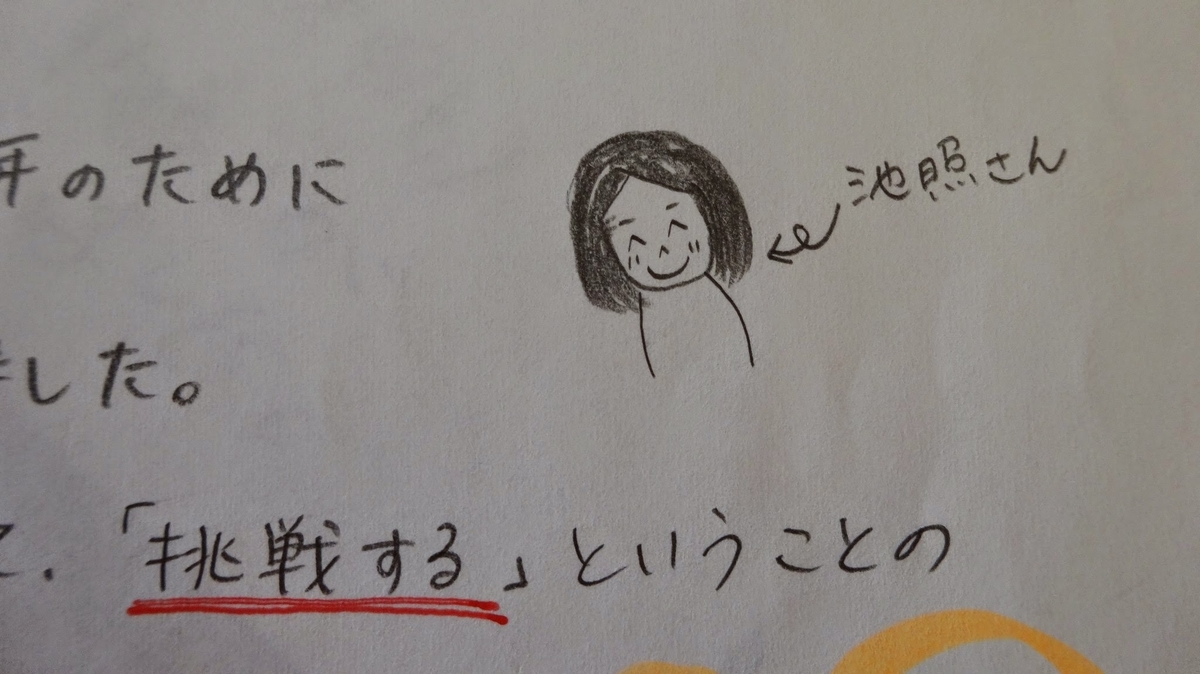 年のために
池照さん
ました。
「挑戦する」ということの